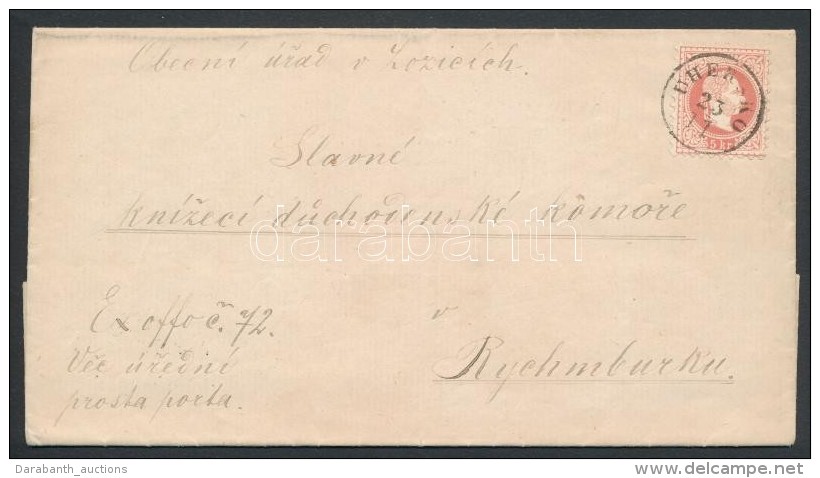 Obecní úřad v Lozicích.
UHERSKO
23
11
5 kr
Slavné
knížecí důchodenské kômoře
darabanth
Ex offo č. 72.
v
Věc úřední
Rychmburku.
prosta porta.
Darabanth_auctions
www.delcampe.net